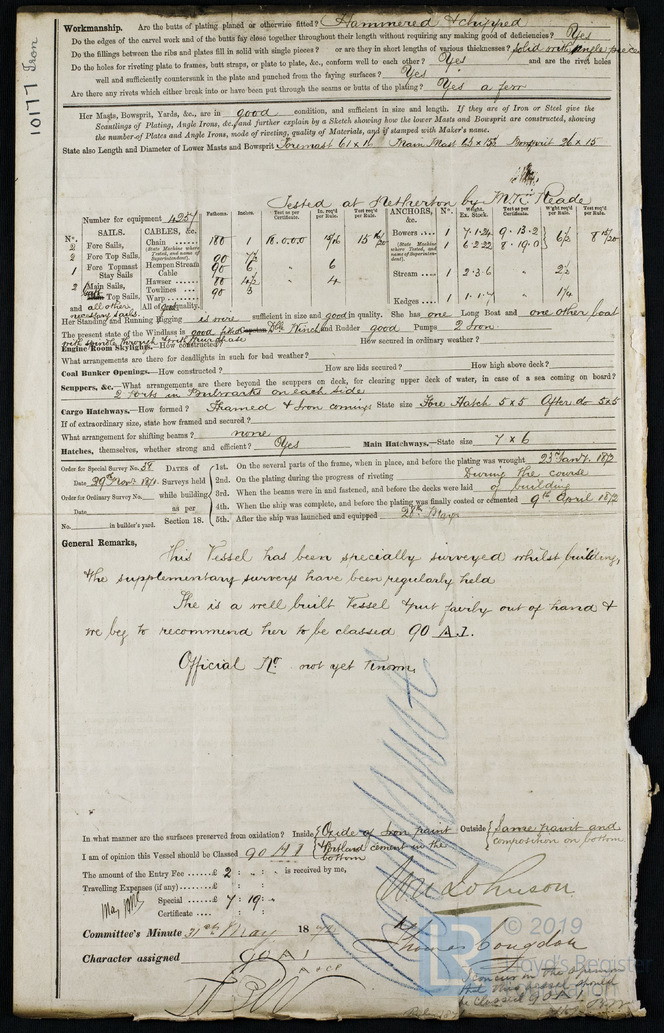 10177 Iron
Workmanship. Are the butts of plating planed or otherwise fitted? Hammered & chipped
Do the edges of the carvel work and of the butts fay close together throughout their length without requiring any making good of deficiencies? Yes
Do the fillings between the ribs and plates fill in solid with single pieces? or are they in short lengths of various thicknesses? solid with single pieces
Do the holes for riveting plate to frames, butt straps, or plate to plate, &c., conform well to each other? Yes and are the rivet holes
well and sufficiently countersunk in the plate and punched from the faying surfaces? Yes
Are there any rivets which either break into or have been put through the seams or butts of the plating? Yes a few
Her Masts, Bowsprit, Yards, &c., are in good condition, and sufficient in size and length. If they are of Iron or Steel give the
Scantlings of Plating, Angle Irons, &c., and further explain by a Sketch showing how the lower Masts and Bowsprit are constructed, showing
the number of Plates and Angle Irons, mode of riveting, quality of Materials, and if stamped with Maker's name.
State also Length and Diameter of Lower Masts and Bowsprit Foremast 61 x 16 Main Mast 63 x 15½ Bowsprit 26 x 15
Tested at Netherton by Reade
Number for equipment 4257
SAILS. CABLES, &c. Fathoms. Inches. Test as per Certificate. In. req'd per Rule. Test req'd per Rule. ANCHORS, &c. Nº. Weight. Ex. Stock. Test as per Certificate. W'ght req'd per Rule. Test req'd per Rule.
Nº.
2 Fore Sails, Chain 180 1 18.0.0.0 15/16 Bowers 1 7.1.24 9.13.2 6½
2 Fore Top Sails, (State Machine where Tested, and name of Superintendent). 1 6.2.22 8.19.0
1 Fore Topmast Stay Sails Hempen Stream Cable 90 6 " 6 Stream 1 2.3.6 " 2½
2 Main Sails, Hawser 80 4½ " 4
Top Sails, Towlines 90 3 Kedges 1 1.1.7 " 1¼
Warp
and all other necessary sails. All of good quality.
Her Standing and Running Rigging is wire sufficient in size and good in quality. She has one Long Boat and one other boat
The present state of the Windlass is good and Rudder good Pumps 2 Iron
Engine Room Skylights.—How constructed? How secured in ordinary weather?
What arrangements are there for deadlights in such for bad weather?
Coal Bunker Openings.—How constructed? How are lids secured? How high above deck?
Scuppers, &c.—What arrangements are there beyond the scuppers on deck, for clearing upper deck of water, in case of a sea coming on board?
2 Ports in Bulwarks on each side
Cargo Hatchways.—How formed? Framed & Iron comings State size Fore Hatch 5 x 5 After do 5 x 5
If of extraordinary size, state how framed and secured?
What arrangement for shifting beams? none
Hatches, themselves, whether strong and efficient? Yes Main Hatchways.—State size 7 x 6
Order for Special Survey No. 58 DATES of 1st. On the several parts of the frame, when in place, and before the plating was wrought 23rd Jany. 1872
Date 29th Novr. 1871 Surveys held 2nd. On the plating during the progress of riveting During the course
Order for Ordinary Survey No. while building 3rd. When the beams were in and fastened, and before the decks were laid of building
Date as per 4th. When the ship was complete, and before the plating was finally coated or cemented 9th April 1872
No. in builder's yard. Section 18. 5th. After the ship was launched and equipped 28th May
General Remarks, This Vessel has been specially surveyed whilst building,
the supplementary surveys have been regularly held
She is a well built Vessel & put fairly out of hand &
we beg to recommend her to be classed 90 A.1.
Official No. not yet known
In what manner are the surfaces preserved from oxidation? Inside Oxide of Iron paint Outside Same paint and
& Portland cement in the bottom composition on bottom
I am of opinion this Vessel should be Classed 90 A 1
The amount of the Entry Fee £ 2 : : is received by me,
Travelling Expenses (if any) £
Special £ 7 : 19 :
Certificate : :
Wm Johnson
Thomas Congdon
Committee's Minute 31st May 1872
Character assigned 90 A 1
A & CP
concur in the opinion
that this vessel should
be classed 90 A 1
LR © 2019
Lloyd's Register
Foundation